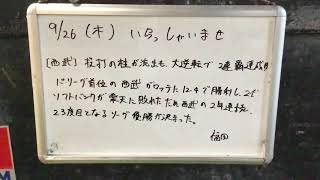 9/26(木) いらっしゃいませ
[西武] 投打の柱が流出も、大逆転で2連覇達成!!
パ・リーグ首位の西武がロッテに12-4で勝利し、2位
ソフトバンクが楽天に敗れたため西武の2年連続、
23度目となるリーグ優勝が決まった。
福田